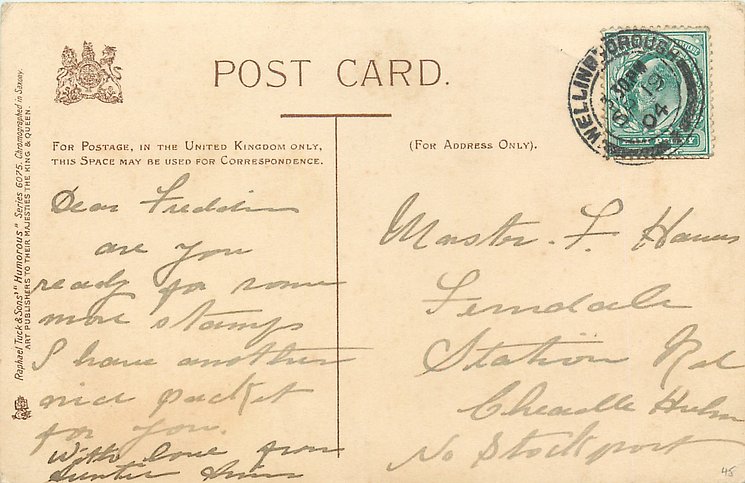 POST CARD.
FOR POSTAGE, IN THE UNITED KINGDOM ONLY,
THIS SPACE MAY BE USED FOR CORRESPONDENCE.
(FOR ADDRESS ONLY).
Raphael Tuck & Sons' "Humorous" Series 6075. Chromographed in Saxony.
ART PUBLISHERS TO THEIR MAJESTIES THE KING & QUEEN.
WELLINGBOROUGH
3.30PM
19
04
Dear Freddie
are you
ready for some
more stamps
I have another
nice packet
for you.
With love from
Auntie
Master. F.
Ferndale
Station Rd
Cheadle Hulme
Nr Stockport
45